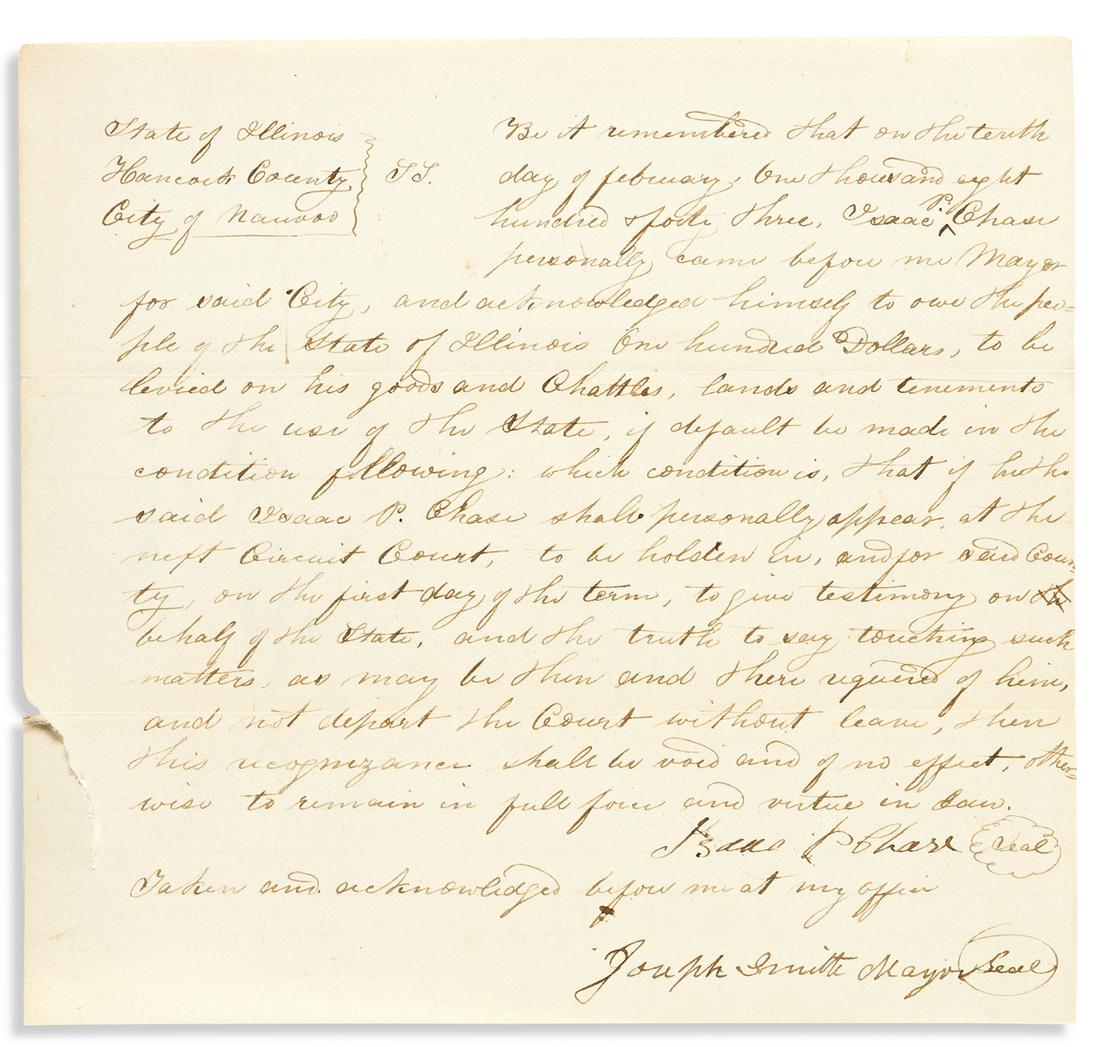 State of Illinois
Hancock County
City of Nauvoo
SS.
Be it remembered that on the tenth
day of february, One thousand eight
hundred & forty three, Isaac P. Chase
personally came before me Mayor
for said City, and acknowledged himself to owe the peo=
ple of the State of Illinois One hundred Dollars, to be
levied on his goods and Chattles, lands and tenements
to the use of the State, if default be made in the
condition following: which condition is, that if he the
said Isaac P. Chase shall personally appear, at the
next Circuit Court, to be holden in, and for said Coun=
ty, on the first day of the term, to give testimony on
behalf of the State, and the truth to say touching such
matters, as may be then and there required of him,
and not depart the Court without leave, then
this recognizance shall be void and of no effect, other=
wise to remain in full force and virtue in Law.
Isaac P Chase Seal
Taken and acknowledged before me at my office
Joseph Smith Mayor Seal